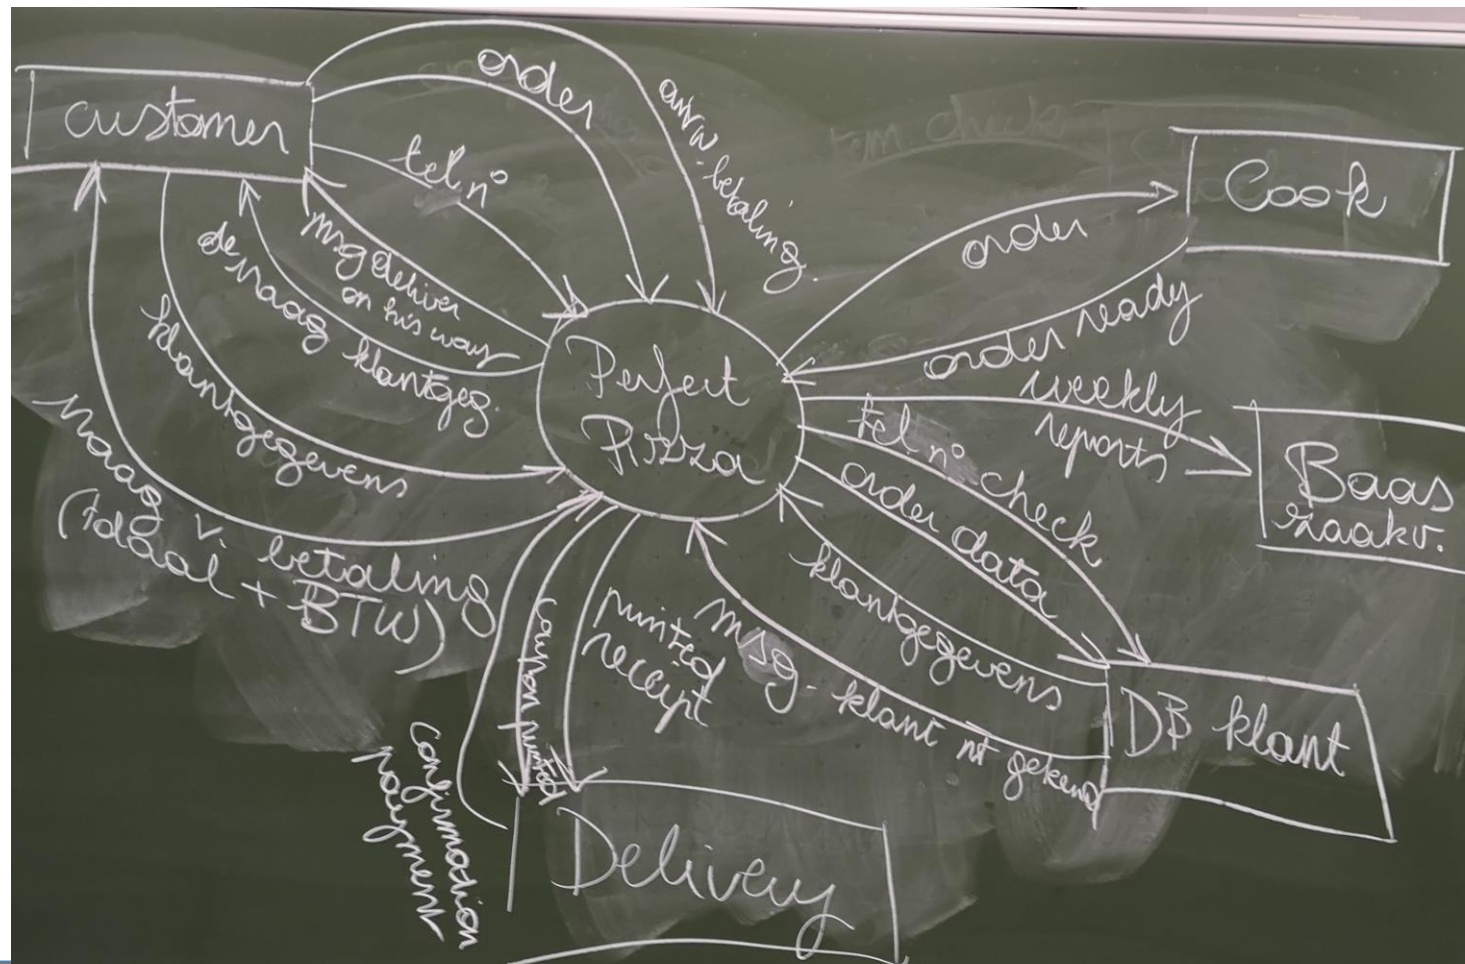 customer
order
tel n°
aanw. betaling.
msg deliver
on his way
klantgeg.
klantgegevens
vraag v. betaling
(totaal + BTW)
Perfect
Pizza
order
Cook
order ready
weekly
reports
Baas
zaakv.
tel n° check
order data
klantgegevens
msg - klant nt gekend
DB klant
printed
receipt
coupon printed
confirmation
payment
Delivery